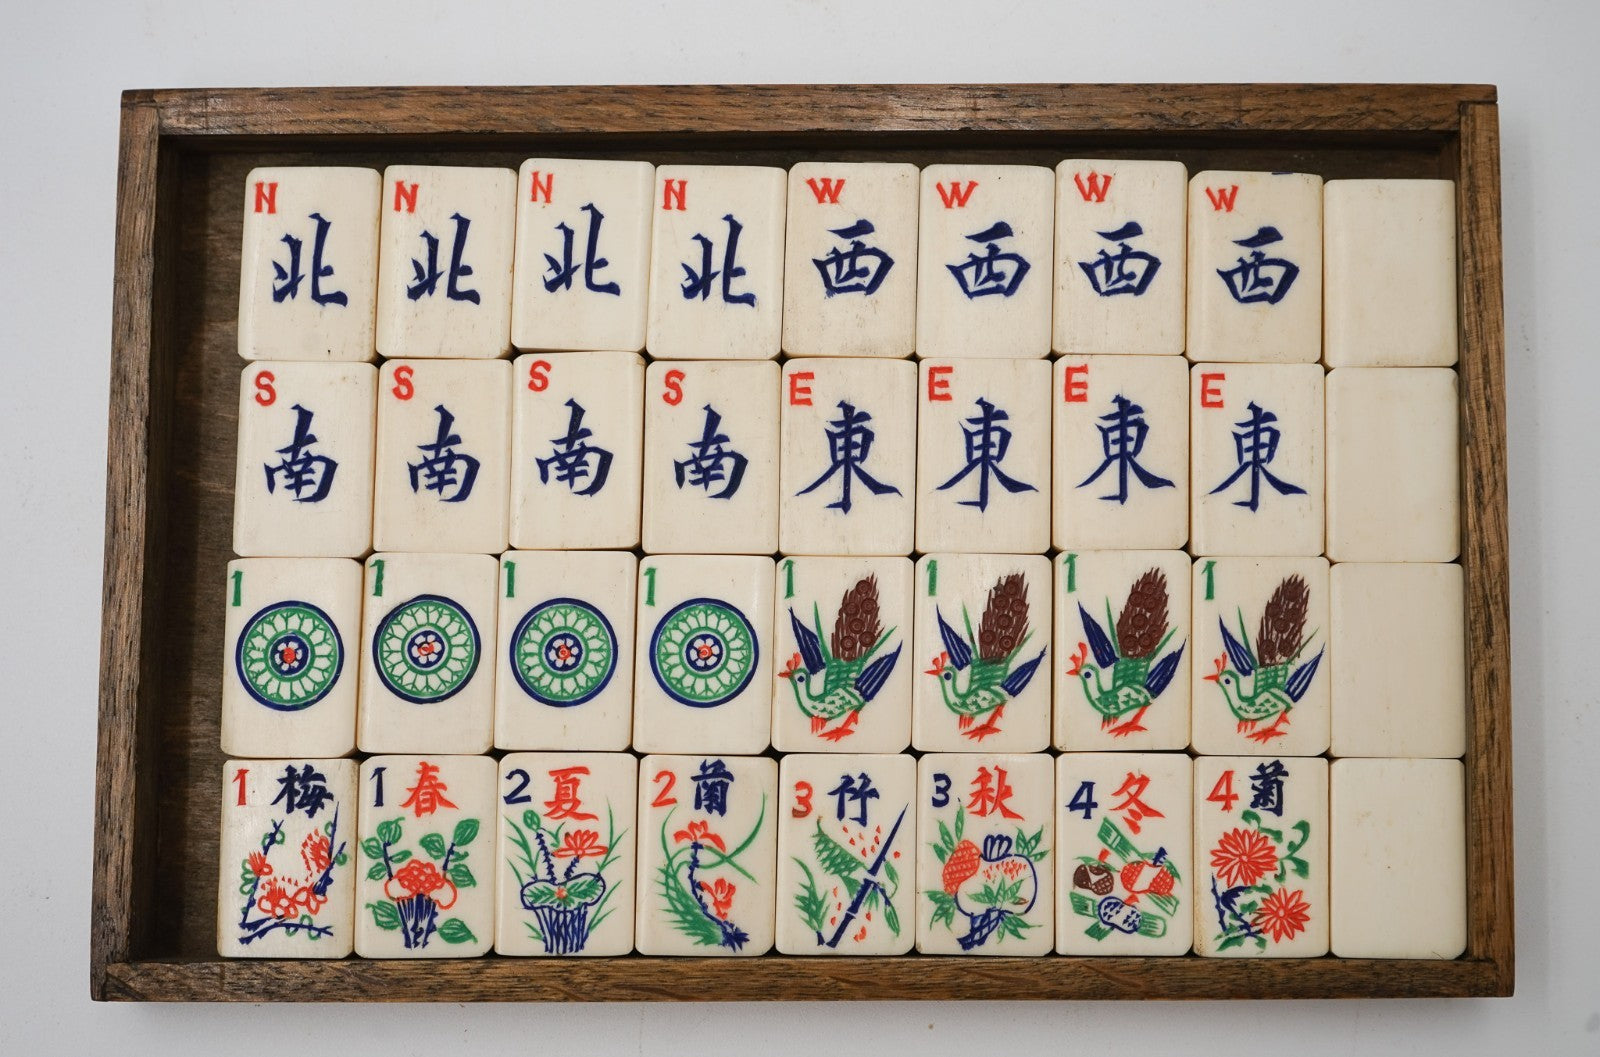 N N N N W W W W
北 北 北 北 西 西 西 西
S S S S E E E E
南 南 南 南 東 東 東 東
1 1 1 1 1 1 1 1
1 梅 1 春 2 夏 2 蘭 3 竹 3 秋 4 冬 4 菊